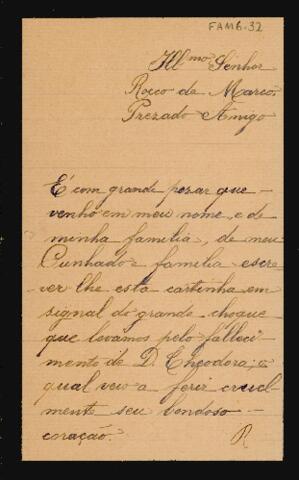 FAMB-32
Illmo Senhor
Rocco de Marco
Prezado Amigo
É com grande pezar que
venho em meu nome, e de
minha familia, de meu
Cunhado e familia escre-
ver lhe esta cartinha em
signal do grande choque
que levamos pelo falleci-
mento de D. Theodora, o
qual veio a ferir cruel
mente seu bondoso
coração.
R